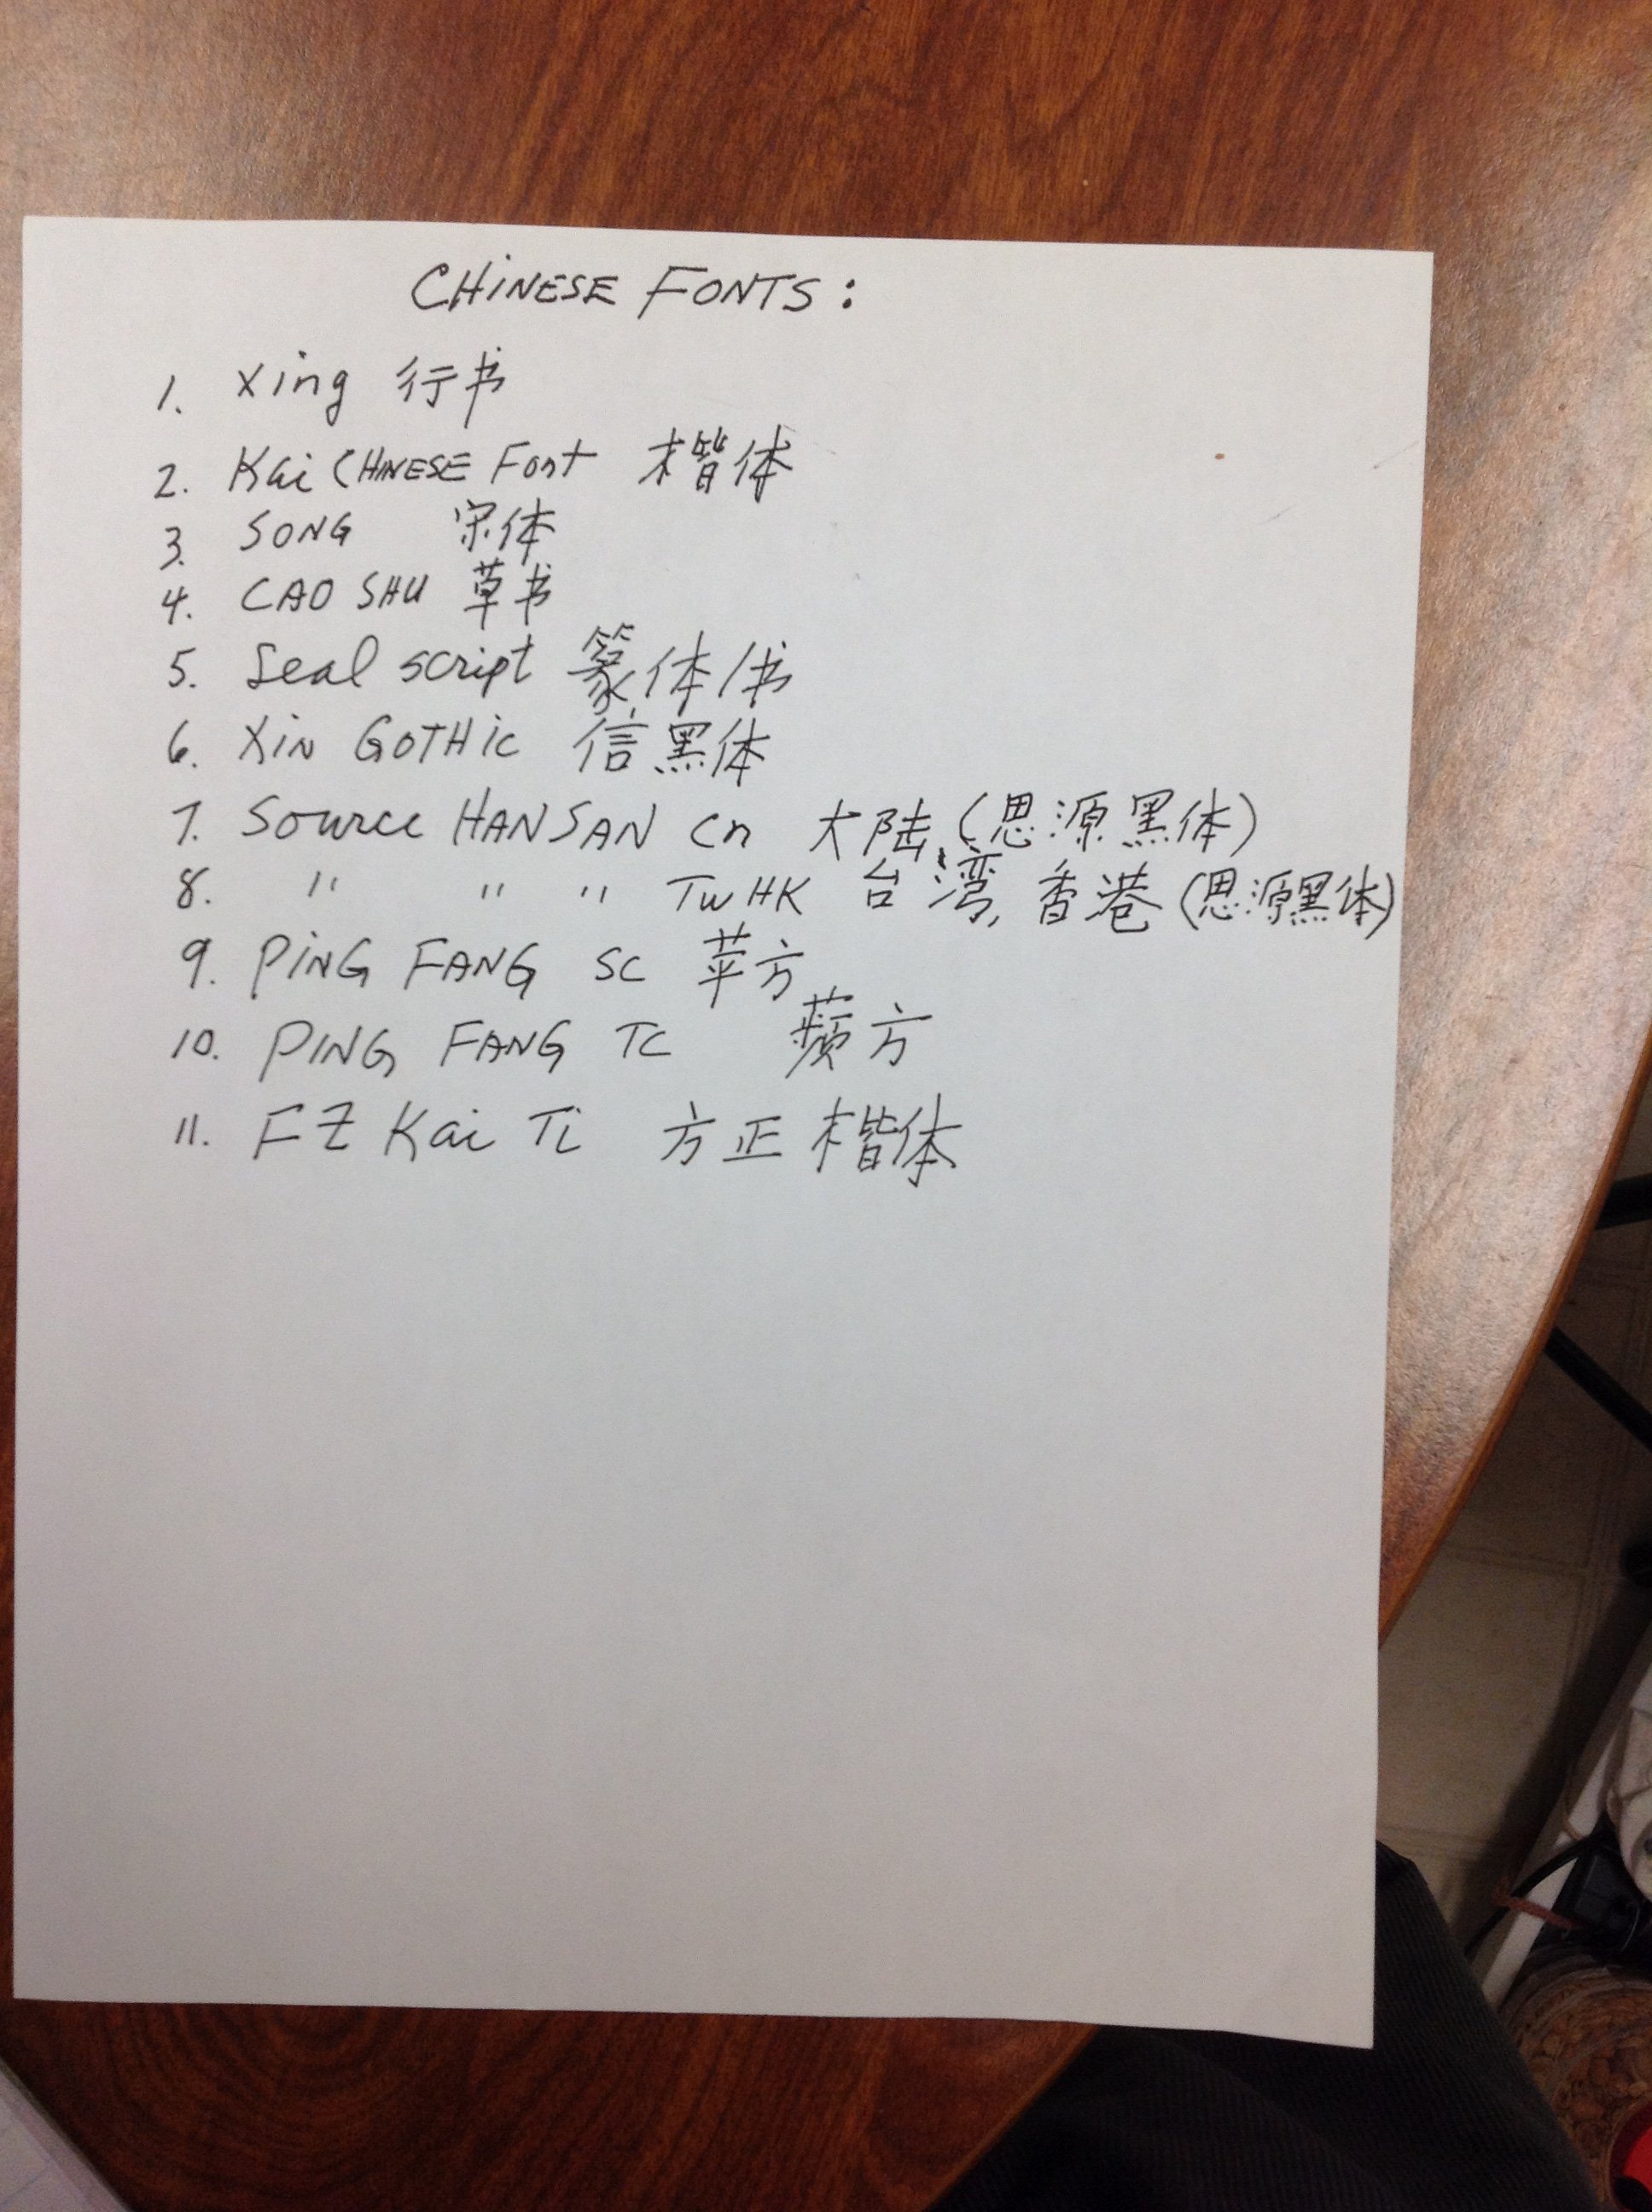 CHINESE FONTS:
1. Xing 行书
2. Kai CHINESE Font 楷体
3. SONG 宋体
4. CAO SHU 草书
5. Seal script 篆体/书
6. XiN GOTHic 信黑体
7. Source HAN SAN Cn 大陆 (思源黑体)
8. " " " TW HK 台湾, 香港 (思源黑体)
9. PiNG FANG SC 苹方
10. PING FANG TC 蘋方
11. FZ Kai Ti 方正楷体